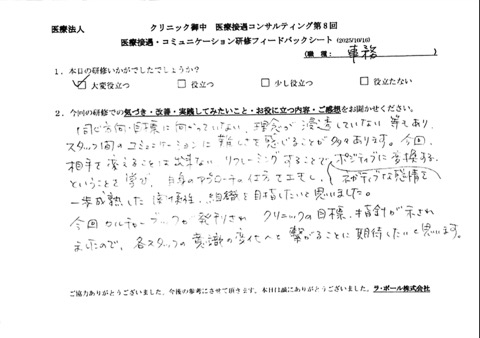 医療法人　クリニック御中　医療接遇コンサルティング第8回
医療接遇・コミュニケーション研修フィードバックシート (2025/10/16)
(職種： 事務 )
1．本日の研修いかがでしたでしょうか？
☑大変役立つ　□役立つ　□少し役立つ　□役立たない
2．今回の研修での気づき・改善・実践してみたいこと・お役に立つ内容・ご感想をお聞かせください。
同じ方向、目標に向かっていない、理念が浸透していない等もあり、
スタッフ間のコミュニケーションに難しさを感じることが多々あります。今回、
相手を変えることは出来ない リフレーミングすることで ポジティブに変換する
ということを学び、自身のアプローチの仕方で工夫し、ネガティブな感情を
一歩成熟した 組織を目指したいと思いました。
今回カルチャーブックが発刊され クリニックの目標、指針が示され
ましたので、各スタッフの意識の変化へと繋がることに期待したいと思います。
ご協力ありがとうございました。今後の参考にさせて頂きます。本日は誠にありがとうございました。ラ・ポール株式会社